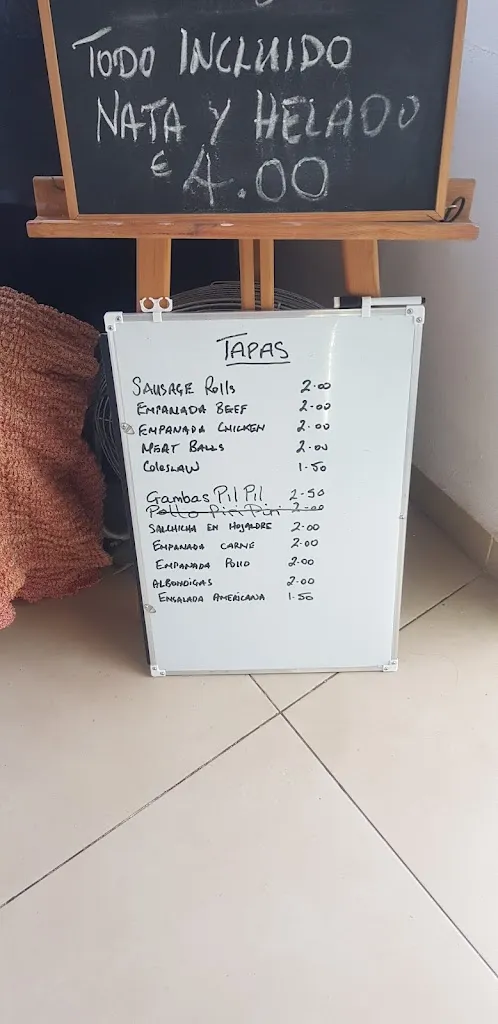 TODO INCLUIDO
NATA Y HELADO
€4.00
TAPAS
SAUSAGE Rolls 2.00
EMPANADA BEEF 2.00
EMPANADA CHICKEN 2.00
MEAT BALLS 2.00
COLESLAW 1.50
Gambas Pil Pil 2.50
Pollo Piri Piri 2.00
SALCHICHA EN HOJALDRE 2.00
EMPANADA CARNE 2.00
EMPANADA POLLO 2.00
ALBONDIGAS 2.00
ENSALADA AMERICANA 1.50